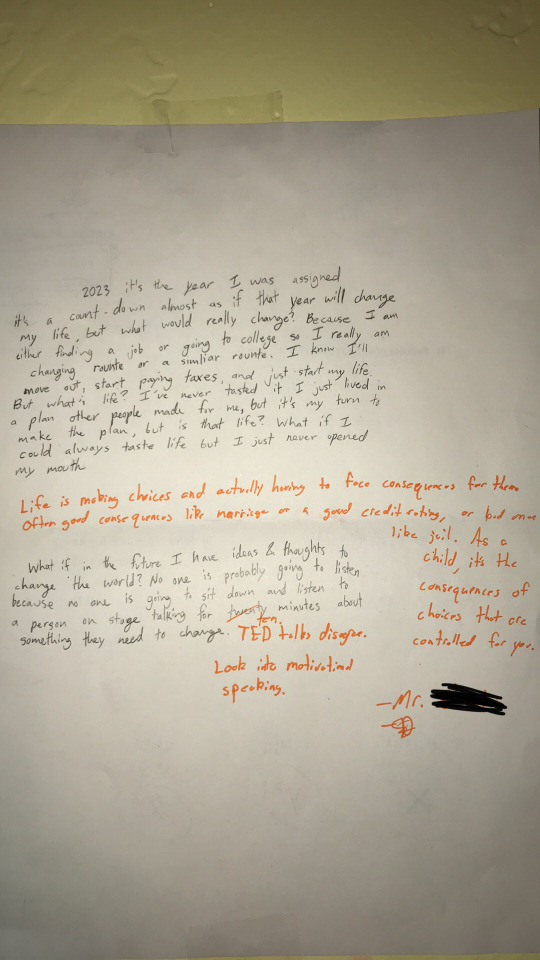 2023 it's the year I was assigned
it's a count-down almost as if that year will change
my life, but what would really change? Because I am
either finding a job or going to college so I really am
changing rounte or a similiar rounte. I know I'll
move out, start paying taxes, and just start my life.
But what is life? I've never tasted it I just lived in
a plan other people made for me, but it's my turn to
make the plan, but is that life? What if I
could always taste life but I just never opened
my mouth
Life is making choices and actually having to face consequences for them
Often good consequences like marriage or a good credit rating, or bad ones
like jail. As a
child, it's the
consequences of
choices that are
controlled for you.
What if in the future I have ideas & thoughts to
change the world? No one is probably going to listen
because no one is going to sit down and listen to
a person on stage talking for twenty minutes about
ten.
something they need to change. TED talks disagree.
Look into motivational
speaking.
-Mr.